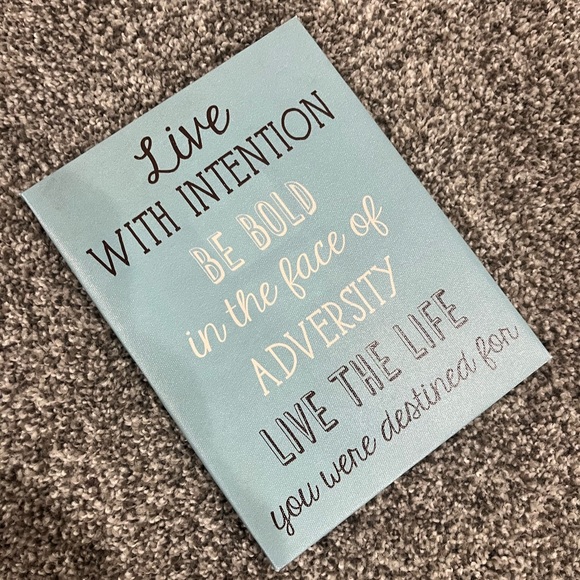 Live
WITH INTENTION
BE BOLD
in the face of
ADVERSITY
LIVE THE LIFE
you were destined for